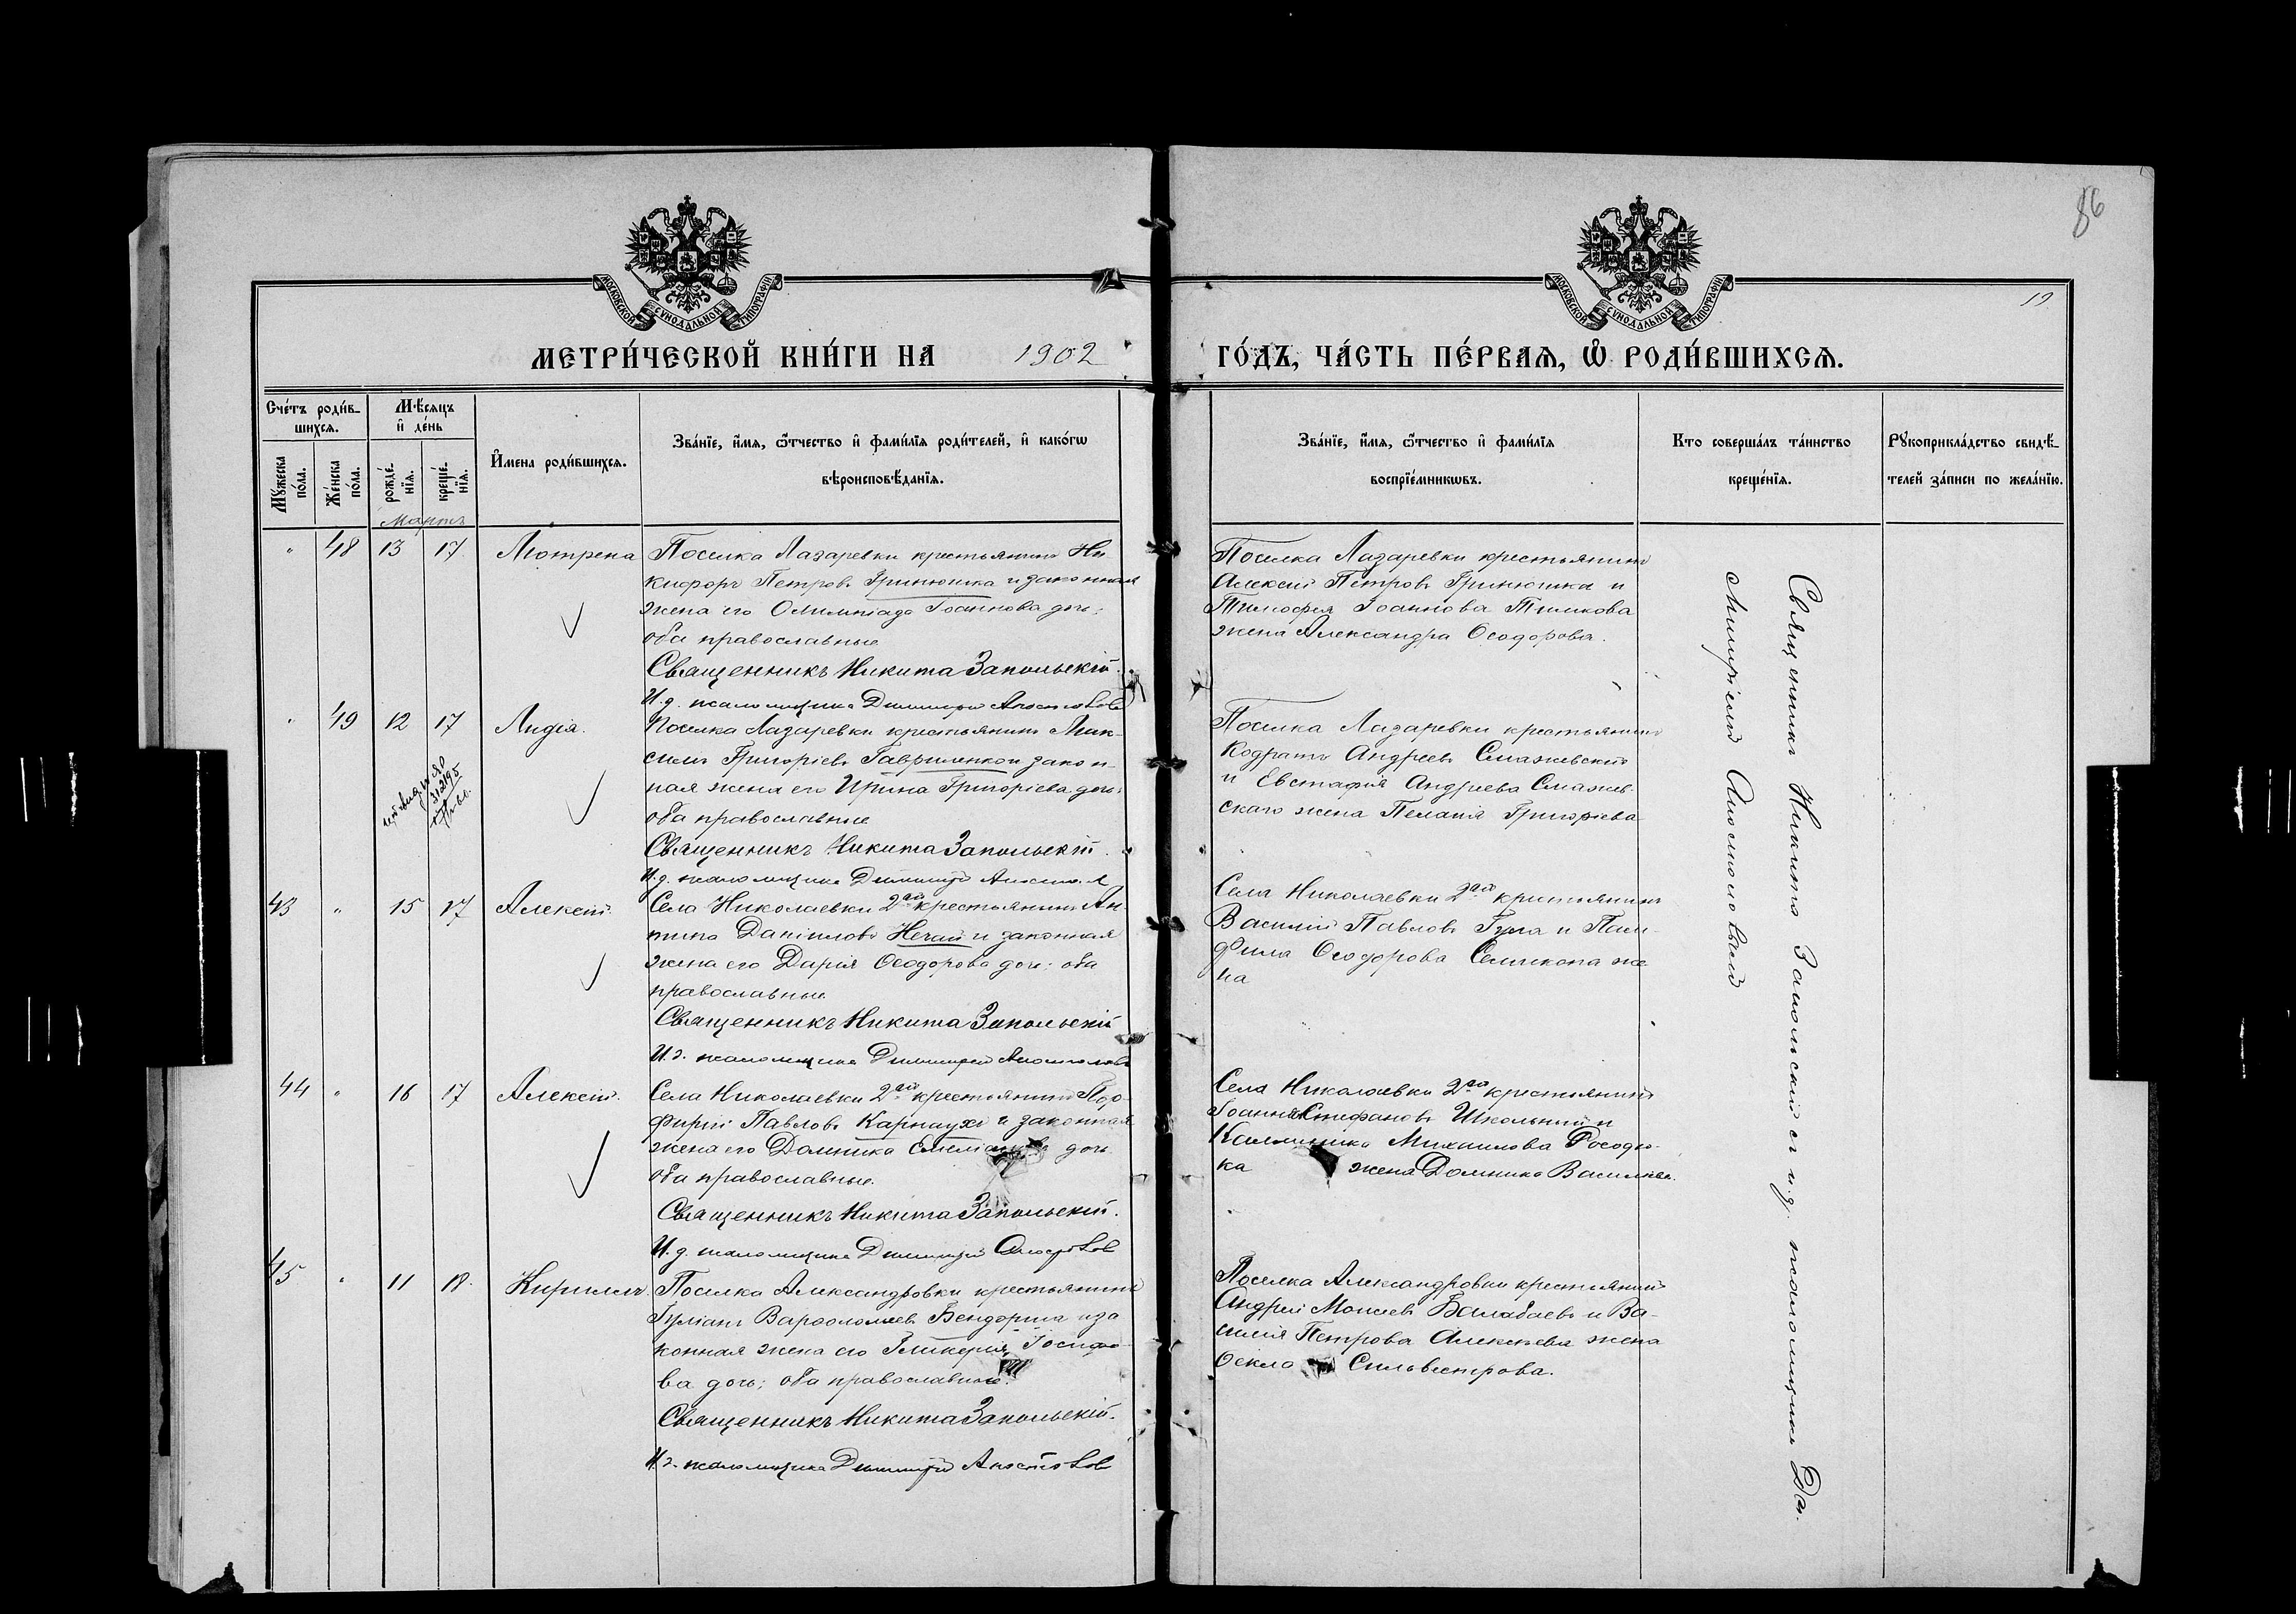 86
19
МОСКОВСКОЙ СѴНОДАЛЬНОЙ ТИПОГРАФІИ
МОСКОВСКОЙ СѴНОДАЛЬНОЙ ТИПОГРАФІИ
МЕТРИ́ЧЕСКОЙ КНИ́ГИ НА 1902 ГО́ДЪ, ЧА́СТЬ ПЕ́РВАѦ, Ѡ҆ РОДИ́ВШИХСѦ.
Сче́тъ роди́вшихсѧ.
Мꙋ́жеска по́ла.
Же́нска по́ла.
Мѣ́сѧцъ и҆ де́нь
рожде́нїѧ.
креще́нїѧ.
И҆мена роди́вшихсѧ.
Зва́нїе, и҆́мѧ, ѻ҆́тчество и҆ фами́лїѧ роди́телей, и҆ како́гѡ
вѣроисповѣ́данїѧ.
Зва́нїе, и҆́мѧ, ѻ҆́тчество и҆ фами́лїѧ
воспрїе́мникѡвъ.
Кто̀ соверша́лъ та́инство
креще́нїѧ.
Рꙋкоприкла́дство свидѣ́телей за́писи по жела́нїю.
Мартъ
" 48 13 17 Мотрена
Поселка Лазаревки крестьянинъ Ни-
кифоръ Петровъ Гринюшка и законная
жена его Олимпіада Іоаннова дочь;
оба православные
Священникъ Никита Запольскій.
И.д. псаломщика Димитрій Апостоловъ
Поселка Лазаревки крестьянинъ
Алексій Петровъ Гринюшка и
Тимофея Іоаннова Тимкова
жена Александра Ѳеодорова.
" 49 12 17 Лидія.
Поселка Лазаревки крестьянинъ Мак-
симъ Григоріевъ Гавриленко и закон-
ная жена его Ирина Григоріева дочь;
оба православные
Священникъ Никита Запольскій.
И.д. псаломщика Димитрій
Поселка Лазаревки крестьянинъ
Кодратъ Андреевъ Смажевскій
и Евстафія Андреева Смажев-
скаго жена Пелагія Григоріева
43 " 15 17 Алексій.
Села Николаевки 2ой крестьянинъ Ан-
типъ Даніиловъ Нечай и законная
жена его Дарія Ѳеодорова дочь; оба
православные.
Священникъ Никита Запольскій
И.д. псаломщика Димитрій Апостоловъ
Села Николаевки 2ой крестьянинъ
Василій Павловъ Гула и Пам-
фила Ѳеодорова жена
44 " 16 17 Алексій.
Села Николаевки 2ой крестьянинъ Пор-
фирій Павловъ Карнаухъ и законная
жена его Домника дочь
оба православные.
Священникъ Никита Запольскій.
И.д. псаломщика Димитрій Апостоловъ
Села Николаевки 2ой крестьянинъ
Іоаннъ Стефановъ Школьный и
Михаилова
жена Домника Васильева.
45 " 11 18. Кириллъ.
Поселка Александровки крестьянинъ
Іуліанъ Варѳоломеевъ и за
конная жена его Гликерія
ва дочь; оба православные.
Священникъ Никита Запольскій.
И.д. псаломщика Димитрій Апостоловъ
Поселка Александровки крестьянинъ
Андрей Моисеевъ Балабаевъ и Ва-
силія Петрова Алексеева жена
Ѳекла Сильвестрова.
Священникъ Никита Запольскій съ и.д. псаломщика Ди-
митріемъ Апостоловымъ